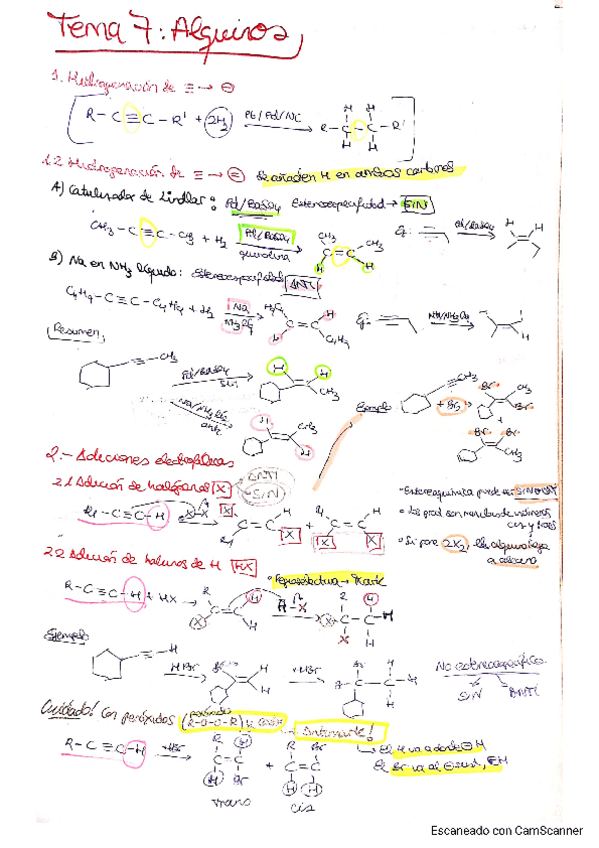 Tema 7: Alquinos
1. Hidrogenación de ≡ →
R-C≡C-R' + 2H2 Pt/Pd/Ni R-C-C-R'
H H
H H
1.2 Hidrogenación de ≡ → = Se añaden H en ambos carbonos
A) Catalizador de Lindlar: Pd/BaSO4 Estereoespecifidad → SIN
CH3-C≡C-CH3 + H2 Pd/BaSO4 quinolina CH3 C=C CH3 H H Ej: Pd/BaSO4 H H
B) Na en NH3 líquido: Estereoespecifidad ANTI
C4H9-C≡C-C4H9 + H2 Na NH3 C=C H H C4H9 Ej: Na/NH3
Resumen
CH3 Pd/BaSO4 sin H H CH3
Na/NH3 anti H CH3 H
Ejemplo CH3 + Br2 Br CH3 Br + Br Br CH3
2.- Adiciones electrofílicas
2.1 Adición de halógenos X ANTI SIN
R1-C≡C-H X-X R1 X C=C X H + R1 C=C H X X
• Estereoquímica puede ser SIN o ANTI
• Los prod. son mezclas de isómeros cis y trans
• Si pone 2X2, el alquino llega a alcano
2.2 Adición de haluros de H HX
• Regioselectiva → Mark
R-C≡C-H + HX R X C=C H H H-X R X C-C-H X H H
Ejemplo
H HBr Br H H +HBr Br Br H H H
No estereoespecífica
SIN ANTI
Cuidado! Con peróxidos (R-O-O-R) Antimark!
R-C≡C-H +HBr R H C=C H Br + R Br C=C H H
trans cis
El H va a donde H
El Br va al
Escaneado con CamScanner